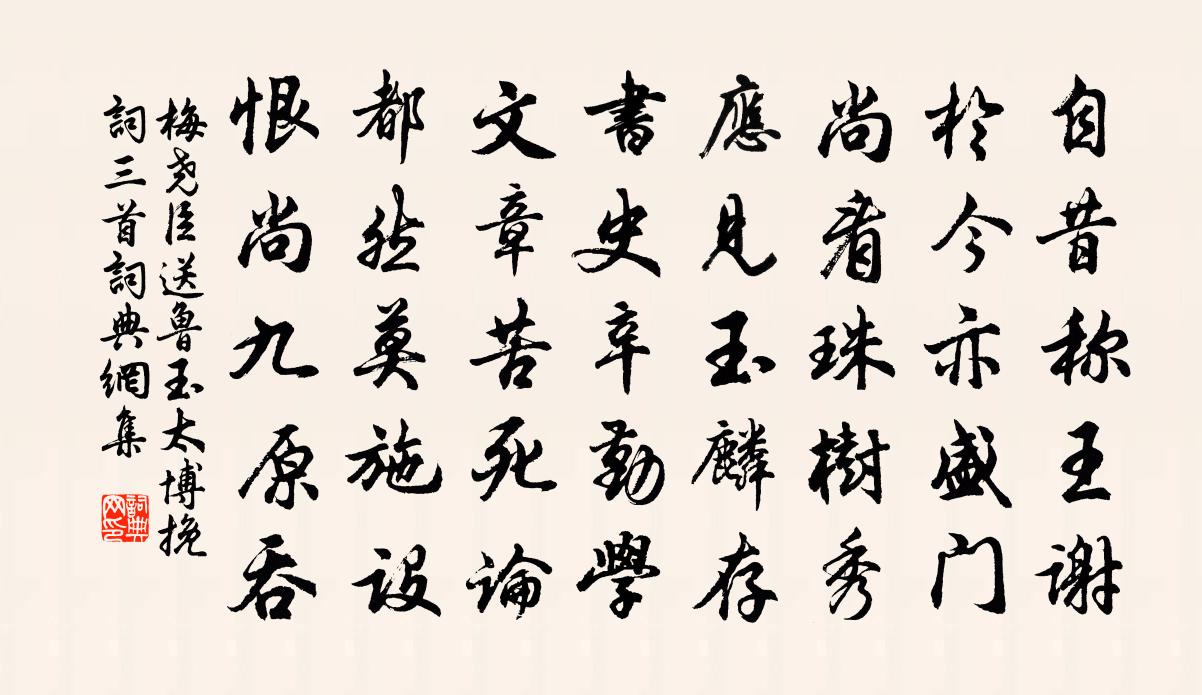 自昔称王谢
於今亦盛门
尚看珠樹秀
應見玉麟存
書史辛勤學
文章苦死論
都然莫施設
恨尚九原吞
梅尧臣送魯玉太博挽
詞三首詞典網集
詞典网印